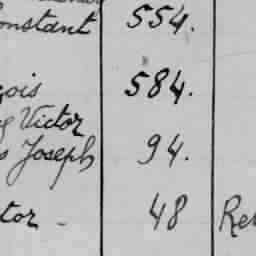 onstant 554.
çois 584.
Victor
Joseph 94.
tor - 48 Res